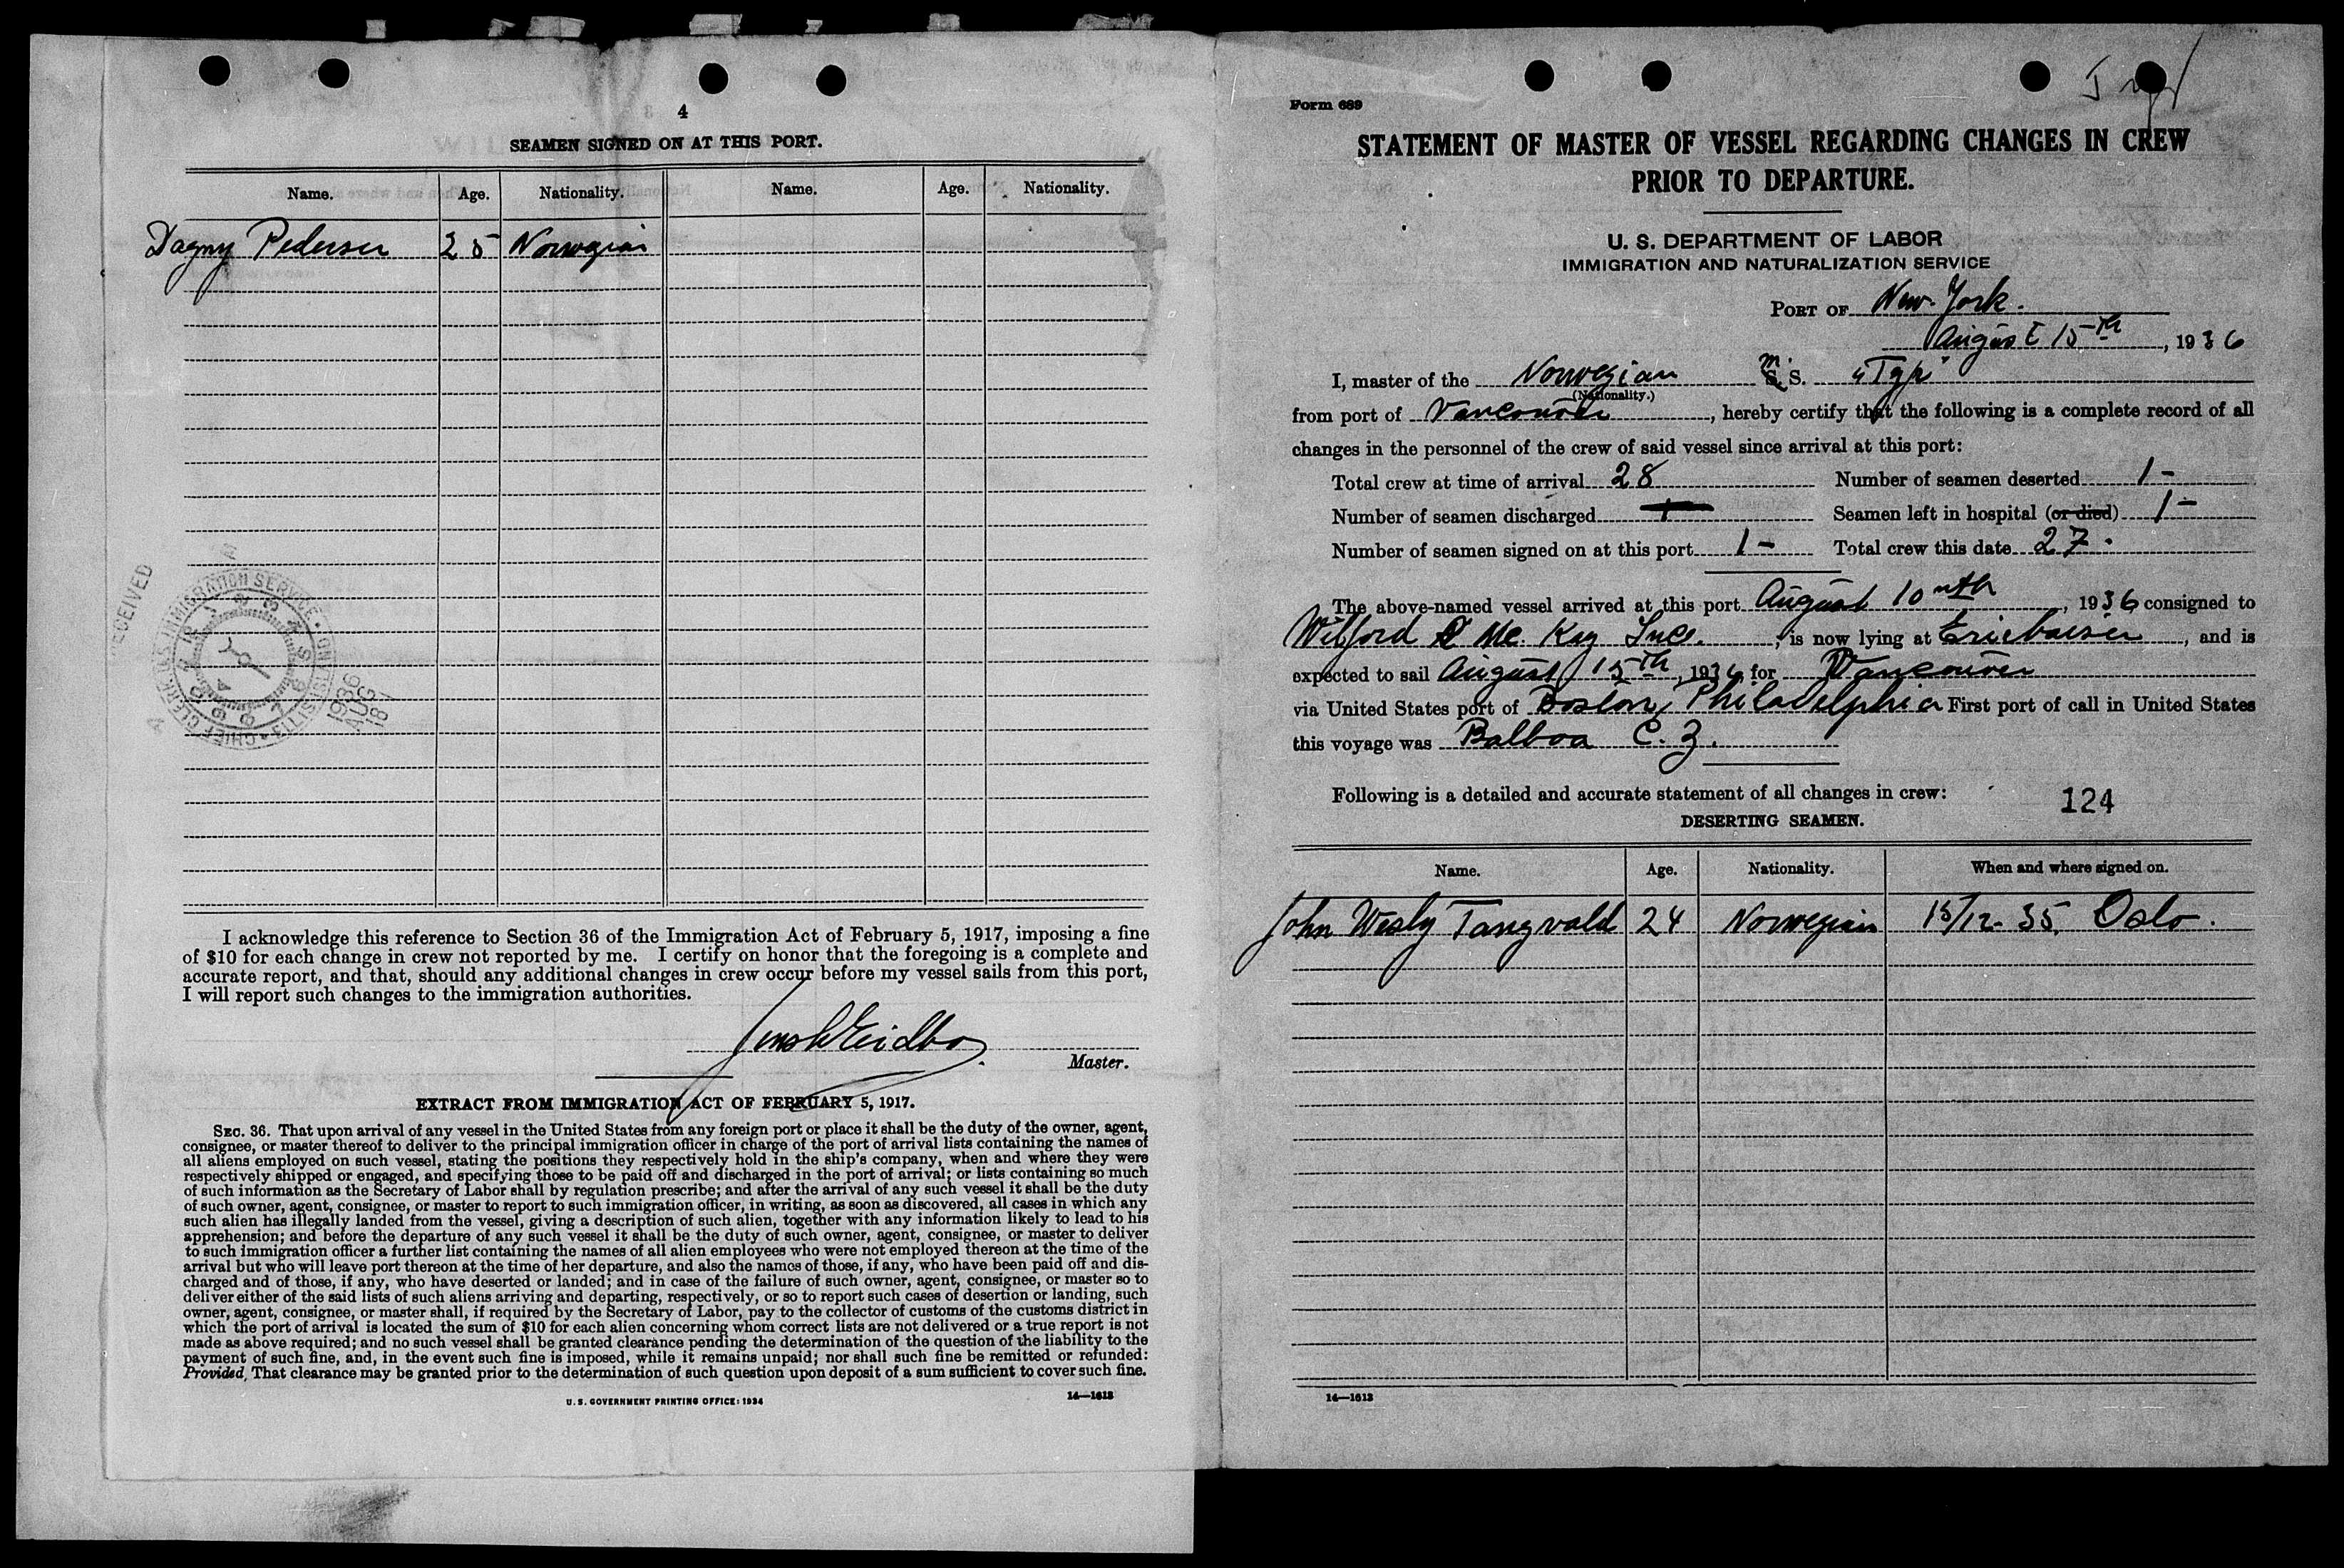 4
SEAMEN SIGNED ON AT THIS PORT.
Name. Age. Nationality. Name. Age. Nationality.
Dagny Pedersen 25 Norwegian
RECEIVED
U.S. IMMIGRATION SERVICE
CHIEF CLERK
1936
AUG
18
I acknowledge this reference to Section 36 of the Immigration Act of February 5, 1917, imposing a fine
of $10 for each change in crew not reported by me. I certify on honor that the foregoing is a complete and
accurate report, and that, should any additional changes in crew occur before my vessel sails from this port,
I will report such changes to the immigration authorities.
Master.
EXTRACT FROM IMMIGRATION ACT OF FEBRUARY 5, 1917.
SEC. 36. That upon arrival of any vessel in the United States from any foreign port or place it shall be the duty of the owner, agent,
consignee, or master thereof to deliver to the principal immigration officer in charge of the port of arrival lists containing the names of
all aliens employed on such vessel, stating the positions they respectively hold in the ship's company, when and where they were
respectively shipped or engaged, and specifying those to be paid off and discharged in the port of arrival; or lists containing so much
of such information as the Secretary of Labor shall by regulation prescribe; and after the arrival of any such vessel it shall be the duty
of such owner, agent, consignee, or master to report to such immigration officer, in writing, as soon as discovered, all cases in which any
such alien has illegally landed from the vessel, giving a description of such alien, together with any information likely to lead to his
apprehension; and before the departure of any such vessel it shall be the duty of such owner, agent, consignee, or master to deliver
to such immigration officer a further list containing the names of all alien employees who were not employed thereon at the time of the
arrival but who will leave port thereon at the time of her departure, and also the names of those, if any, who have been paid off and dis-
charged and of those, if any, who have deserted or landed; and in case of the failure of such owner, agent, consignee, or master so to
deliver either of the said lists of such aliens arriving and departing, respectively, or so to report such cases of desertion or landing, such
owner, agent, consignee, or master shall, if required by the Secretary of Labor, pay to the collector of customs of the customs district in
which the port of arrival is located the sum of $10 for each alien concerning whom correct lists are not delivered or a true report is not
made as above required; and no such vessel shall be granted clearance pending the determination of the question of the liability to the
payment of such fine, and, in the event such fine is imposed, while it remains unpaid; nor shall such fine be remitted or refunded:
Provided, That clearance may be granted prior to the determination of such question upon deposit of a sum sufficient to cover such fine.
U. S. GOVERNMENT PRINTING OFFICE: 1934 14—1613
Form 689
STATEMENT OF MASTER OF VESSEL REGARDING CHANGES IN CREW
PRIOR TO DEPARTURE.
U. S. DEPARTMENT OF LABOR
IMMIGRATION AND NATURALIZATION SERVICE
PORT OF New-York.
August 15th, 1936
I, master of the Norwegian m. S. "Tyr"
(Nationality.)
from port of Vancouver, hereby certify that the following is a complete record of all
changes in the personnel of the crew of said vessel since arrival at this port:
Total crew at time of arrival 28 Number of seamen deserted 1-
Number of seamen discharged Seamen left in hospital (or died) 1-
Number of seamen signed on at this port 1- Total crew this date 27.
The above-named vessel arrived at this port August 10nth, 1936 consigned to
Wilford & Mc. Kay Inc., is now lying at Eriebasin, and is
expected to sail August 15th, 1936 for Vancouver
via United States port of Boston, Philadelphia First port of call in United States
this voyage was Balboa C. Z.
Following is a detailed and accurate statement of all changes in crew: 124
DESERTING SEAMEN.
Name. Age. Nationality. When and where signed on.
John Wesly Tangvald 24 Norwegian 15/12-35. Oslo.
14—1613